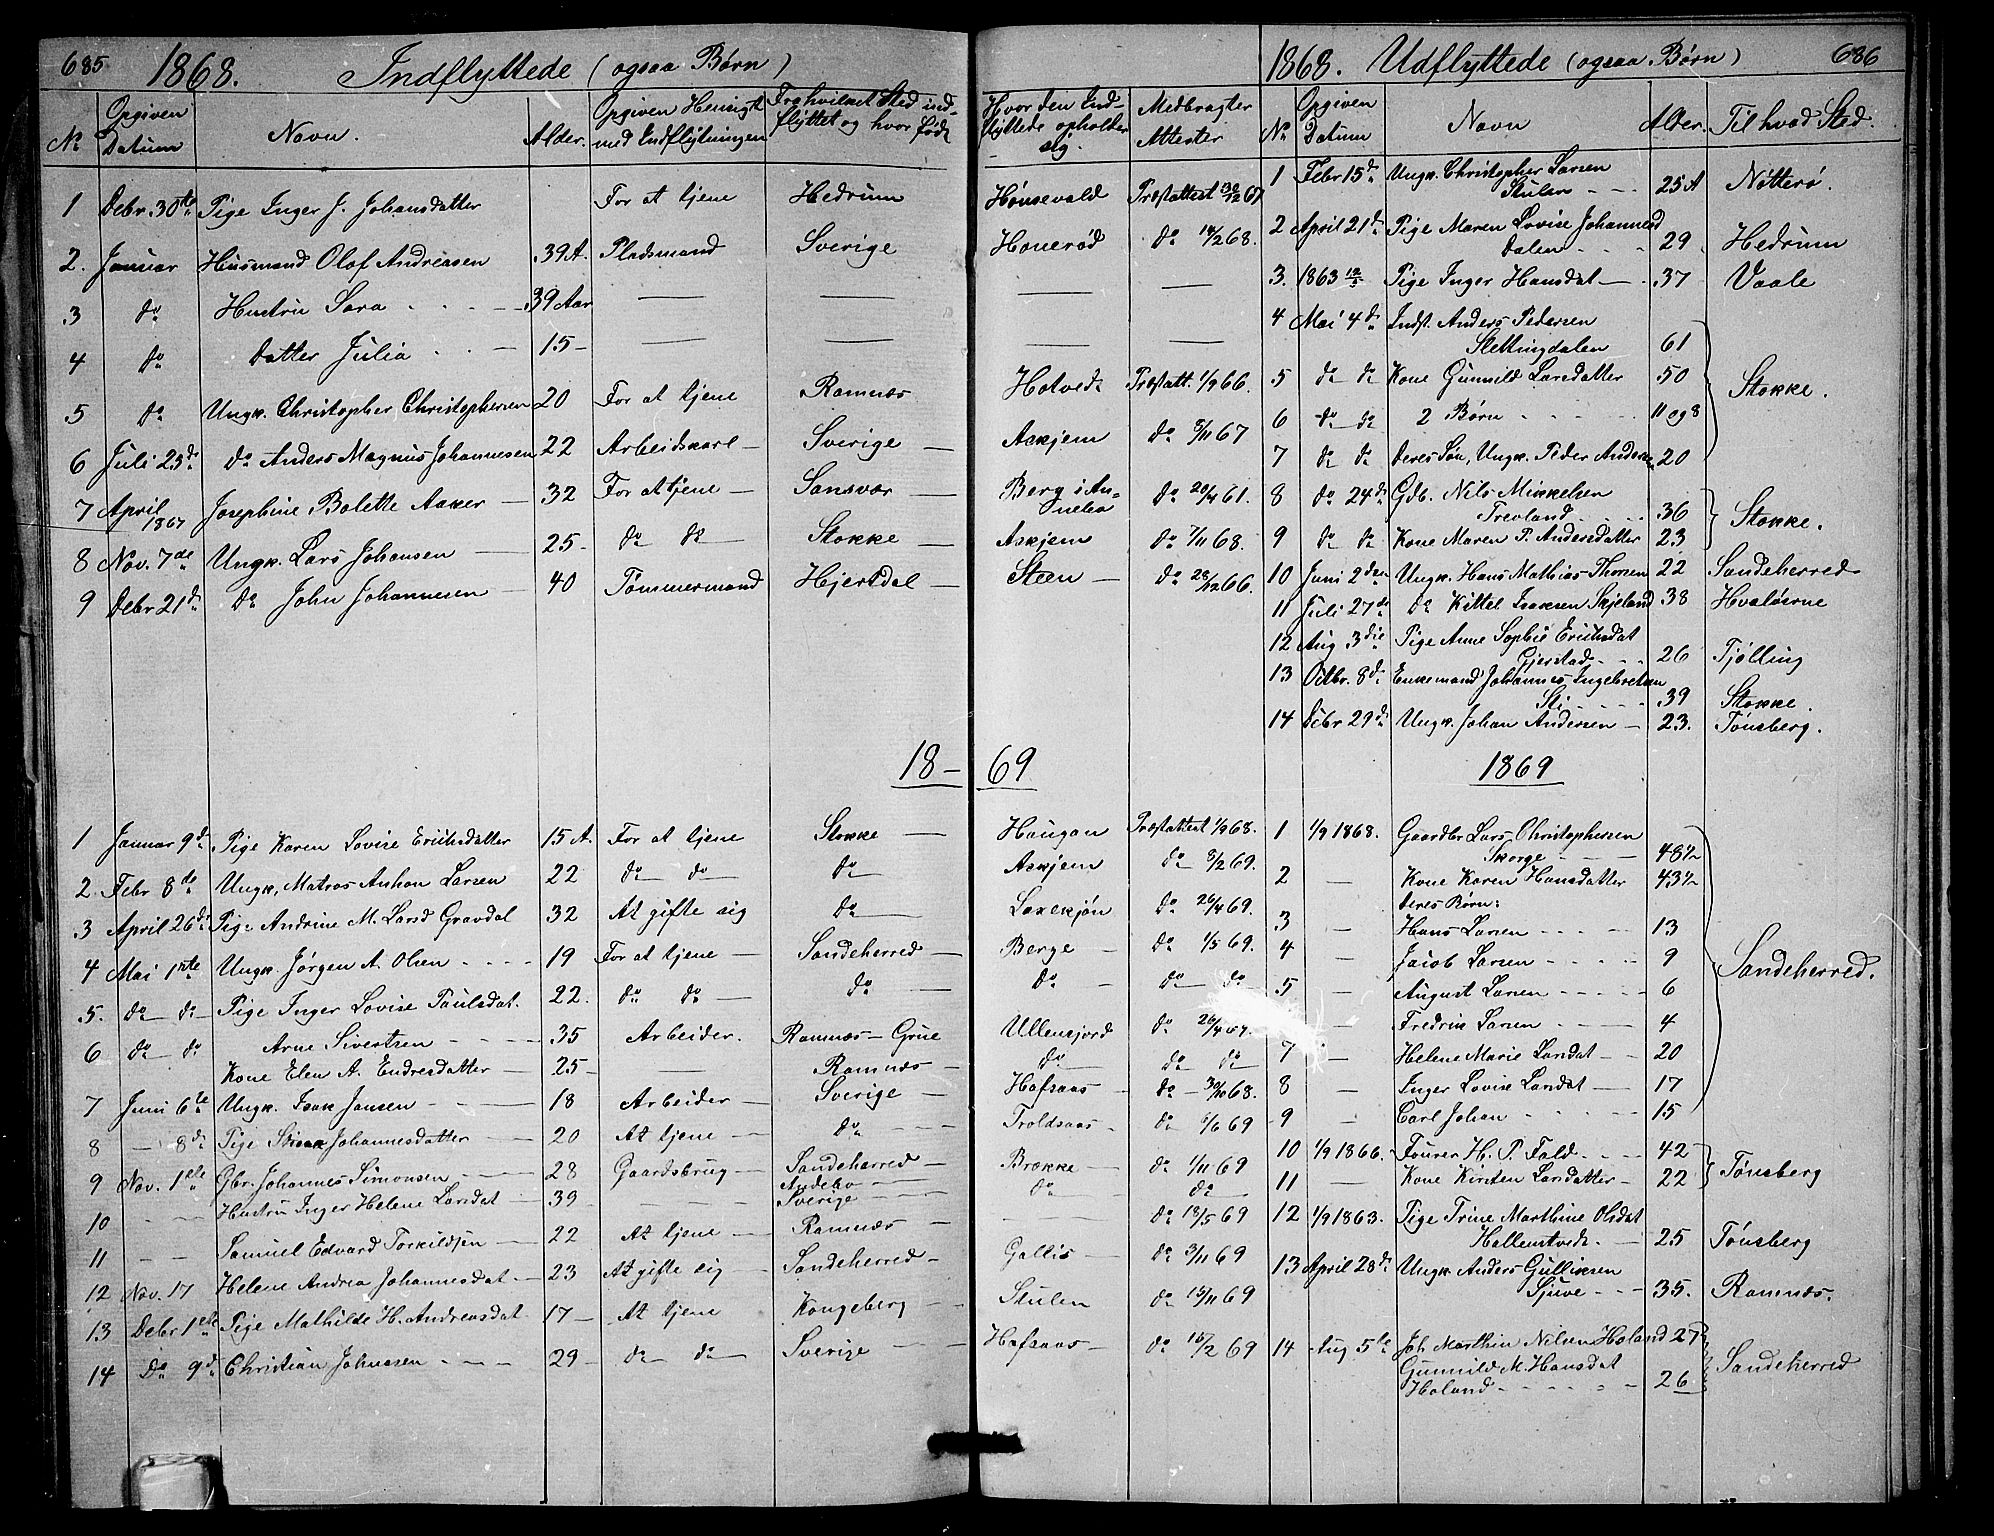 685 1868. Indflyttede (ogsaa Børn)
No Opgiven Datum Navn. Alder. Opgiven Hensigt med Indflytningen Fra hvilket Sted indflyttet og hvor født Hvor den Indflyttede opholder sig. Medbragter Attester
1 Debr. 30te Pige Inger J. Johansdatter For at tjene Hedrum Hønsevald Præstattest 30/12 67
2. Januar Husmand Olaf Andreasen 39 A. Pladsmand Sverige Honerød do 14/2 68.
3 do Hustru Sara 39 Aar — — — —
4 do Datter Julia 15 — — — —
5 do Ungk. Christopher Christophersen 20 For at tjene Ramnæs Hotvedt Præstatt. 1/9 66.
6 Juli 25de do Anders Magnus Johannesen 22 Arbeidskarl Sverige Askjem do 8/11 67
7 April 1867 Josephine Bolette Aaker 32 For at tjene Sansvær Berg i Annebo do 20/4 61.
8 Nov. 7de Ungk. Lars Johansen 25 do do Stokke Askjem do 7/11 68.
9 Debr 21de do John Johannesen 40 Tømmermand Hjertdal Steen do 28/12 66.
18–69
1 Januar 9de Pige Karen Lovise Erichsdatter 15 A. For at tjene Stokke Haugan Præstattest 1/9 68.
2. Febr 8de Ungk, Matros Anthon Larsen 22 do do do Askjem do 8/2 69.
3 April 26de Pige Andrine M. Larsd Gravdal 32 At gifte sig do Laxekjøn do 26/4 69.
4 Mai 1ste Ungk. Jørgen A. Olsen 19 For at tjene Sandeherred Berge do 1/5 69.
5. do do Pige Inger Lovise Paulsdat. 22. do do do do do do
6 do do Arne Sivertsen 35 Arbeider. Ramnæs – Grue Ullensjord do 26/4 67.
Kone Elen A. Endresdatter 25 — Ramnæs do do do
7 Juni 6te Ungk. Isak Jansen 18 Arbeider Sverige Hafsaas do 30/10 68.
8 — 8de Pige Johannesdatter 20 At tjene do Troldsaas do 6/6 69
9 Nov. 1ste Gbr. Johannes Simonsen 28 Gaardsbrug Sandeherred Brække do 1/11 69
10 Hustru Inger Helene Larsdat 39 — Andebo do do
11 Samuel Edvard Torkildsen 22 At tjene Sverige Ramnæs do 18/5 69
12 Nov. 17 Helene Andrea Johannesdat 23 At gifte sig Sandeherred Gallis do 3/11 69
13 Debr 1ste Pige Mathilde H. Andreasdat. 17 At tjene Kongsberg Stulen do 15/11 69
14 Do 9de Christian Johnssen 29 do do Sverige Hafsaas do 16/2 69
1868. Udflyttede (ogsaa Børn) 686
No Opgiven Datum Navn Alder. Til hvad Sted.
1 Febr 15de Ungk. Christopher Larsen
Stulen 25 A Nøtterø.
2 April 21de Pige Maren Lovise Johannesd
Dalen 29 Hedrum
3. 1863 Pige Inger Hansdat 37 Vaale
4 Mai 4de Indst. Anders Pedersen
Slettingdalen 61
5 do do Kone Gunnild Larsdatter 50 Stokke.
6 do do 2 Børn 11 og 8
7 do do Deres Søn, Ungk. Peder Andersen 20
8 do 24de Gdb. Nils Mikkelsen
Trevland 36 Stokke.
9 do do Kone Maren P. Andersdatter 23
10 Juni 2den Ungk. Hans Mathias Thorsen 22 Sandeherred
11 Juli 27de do Kittel Isaksen Skjeland 38 Hvaløerne
12 Aug 3die Pige Anne Sophie Erichsdat
Gjerstad 26 Tjølling
13 Octbr. 8de Enkemand Johannes Ingebretsen
Sti 39 Stokke.
14 Debr 29de Ungk. Johan Andersen 23. Tønsberg.
1869
1 1/9 1868. Gaardbr Lars Christophersen
Skorge 48½
2 — Kone Karen Hansdatter 43½
Deres Børn:
3 — Hans Larsen 13
4 — Jacob Larsen 9 Sandeherred.
5 — August Larsen 6
— Fredrik Larsen 4
7 — Helene Marie Larsdat 20
8 — Inger Lovise Larsdat 17
9 — Carl Johan 15
10 1/9 1866. Fourer H. P. Fald 42 Tønsberg
11 — Kone Kirsten Larsdatter 22
12 1/9 1863. Pige Trine Marthine Olsdat
Hallenstvedt 25 Tønsberg
13 April 28de Ungk Anders Gulliksen
Sjuve 35. Ramnæs.
14 Aug 5te Joh. Marthin Nilsen Holand 27
Gunnild M. Hansdat Sandeherred
Holand 26